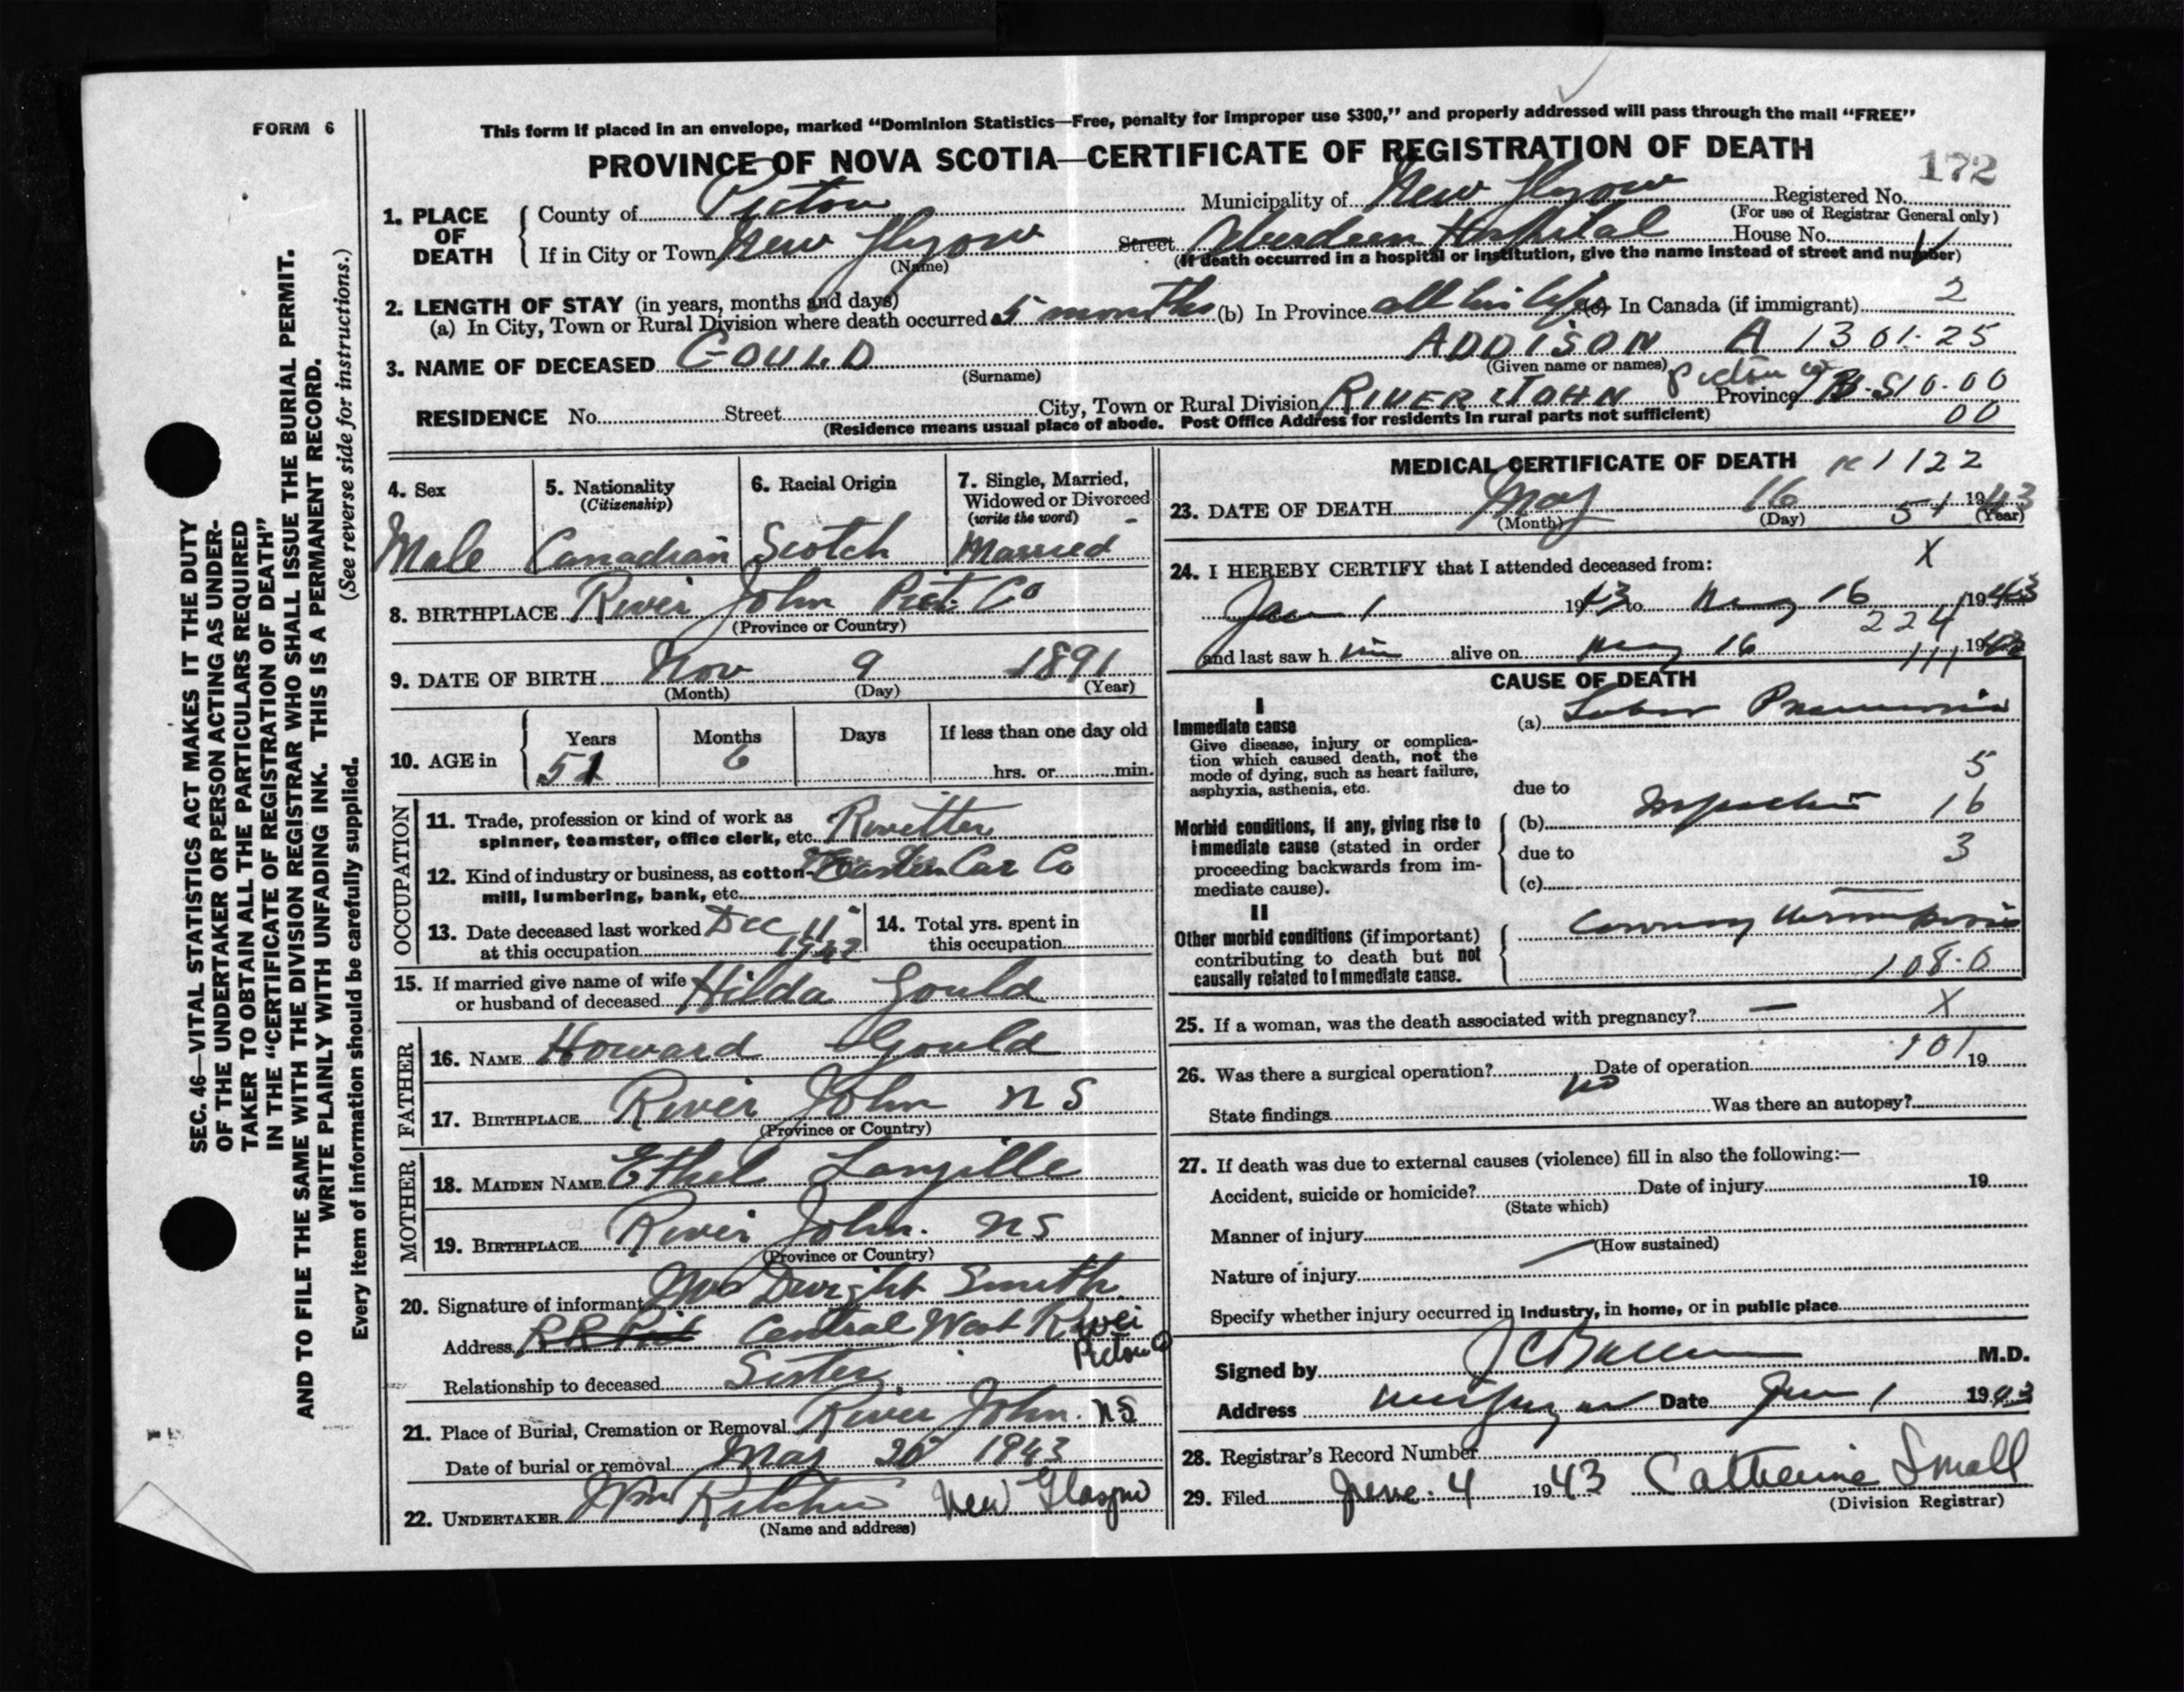 FORM 6
This form if placed in an envelope, marked “Dominion Statistics—Free, penalty for improper use $300,” and properly addressed will pass through the mail “FREE”
PROVINCE OF NOVA SCOTIA—CERTIFICATE OF REGISTRATION OF DEATH
172
1. PLACE OF DEATH
County of Pictou Municipality of New Glasgow Registered No.
(For use of Registrar General only)
If in City or Town New Glasgow Street Aberdeen Hospital House No.
(Name) (If death occurred in a hospital or institution, give the name instead of street and number)
2. LENGTH OF STAY (in years, months and days)
(a) In City, Town or Rural Division where death occurred 5 months (b) In Province all his life (c) In Canada (if immigrant) 2
3. NAME OF DECEASED GOULD ADDISON A 1301-25
(Surname) (Given name or names)
RESIDENCE No. Street City, Town or Rural Division RIVER JOHN Pictou Co Province N.S 10.00
(Residence means usual place of abode. Post Office Address for residents in rural parts not sufficient) 00
4. Sex Male
5. Nationality (Citizenship) Canadian
6. Racial Origin Scotch
7. Single, Married, Widowed or Divorced (write the word) Married
8. BIRTHPLACE River John Pict. Co
(Province or Country)
9. DATE OF BIRTH Nov 9 1891
(Month) (Day) (Year)
10. AGE in Years 51 Months 6 Days If less than one day old
hrs. or min.
OCCUPATION
11. Trade, profession or kind of work as spinner, teamster, office clerk, etc. Rivitter
12. Kind of industry or business, as cotton-mill, lumbering, bank, etc. Eastern Car Co
13. Date deceased last worked at this occupation Dec 11 1942
14. Total yrs. spent in this occupation
15. If married give name of wife or husband of deceased Hilda Gould
FATHER
16. NAME Howard Gould
17. BIRTHPLACE River John N S
(Province or Country)
MOTHER
18. MAIDEN NAME Ethel Langille
19. BIRTHPLACE River John. NS
(Province or Country)
20. Signature of informant Mrs Dwight Smith
Address Central West River
Pictou Co
Relationship to deceased Sister
21. Place of Burial, Cremation or Removal River John. NS
Date of burial or removal May 20 1943
22. UNDERTAKER Wm Ritchie New Glasgow
(Name and address)
MEDICAL CERTIFICATE OF DEATH K 1122
23. DATE OF DEATH May 16 51 1943
(Month) (Day) (Year)
24. I HEREBY CERTIFY that I attended deceased from: X
Jan 1 1943 to May 16 1943
224
and last saw h im alive on May 16 1943
111
CAUSE OF DEATH
I
Immediate cause
Give disease, injury or complication which caused death, not the mode of dying, such as heart failure, asphyxia, asthenia, etc.
(a) Lobar Pneumonia
5
due to
Morbid conditions, if any, giving rise to immediate cause (stated in order proceeding backwards from immediate cause).
(b) 16
due to 3
(c)
II
Other morbid conditions (if important) contributing to death but not causally related to immediate cause.
Coronary Thrombosis
108.0
25. If a woman, was the death associated with pregnancy? — X
26. Was there a surgical operation? no Date of operation 101 19
State findings Was there an autopsy?
27. If death was due to external causes (violence) fill in also the following:—
Accident, suicide or homicide? Date of injury 19
(State which)
Manner of injury
(How sustained)
Nature of injury
Specify whether injury occurred in Industry, in home, or in public place
Signed by M.D.
Address New Glasgow Date June 1 1943
28. Registrar's Record Number
29. Filed June. 4 1943 Catherine Small
(Division Registrar)
SEC. 46—VITAL STATISTICS ACT MAKES IT THE DUTY
OF THE UNDERTAKER OR PERSON ACTING AS UNDER-
TAKER TO OBTAIN ALL THE PARTICULARS REQUIRED
IN THE “CERTIFICATE OF REGISTRATION OF DEATH”
AND TO FILE THE SAME WITH THE DIVISION REGISTRAR WHO SHALL ISSUE THE BURIAL PERMIT.
WRITE PLAINLY WITH UNFADING INK. THIS IS A PERMANENT RECORD.
Every item of information should be carefully supplied. (See reverse side for instructions.)